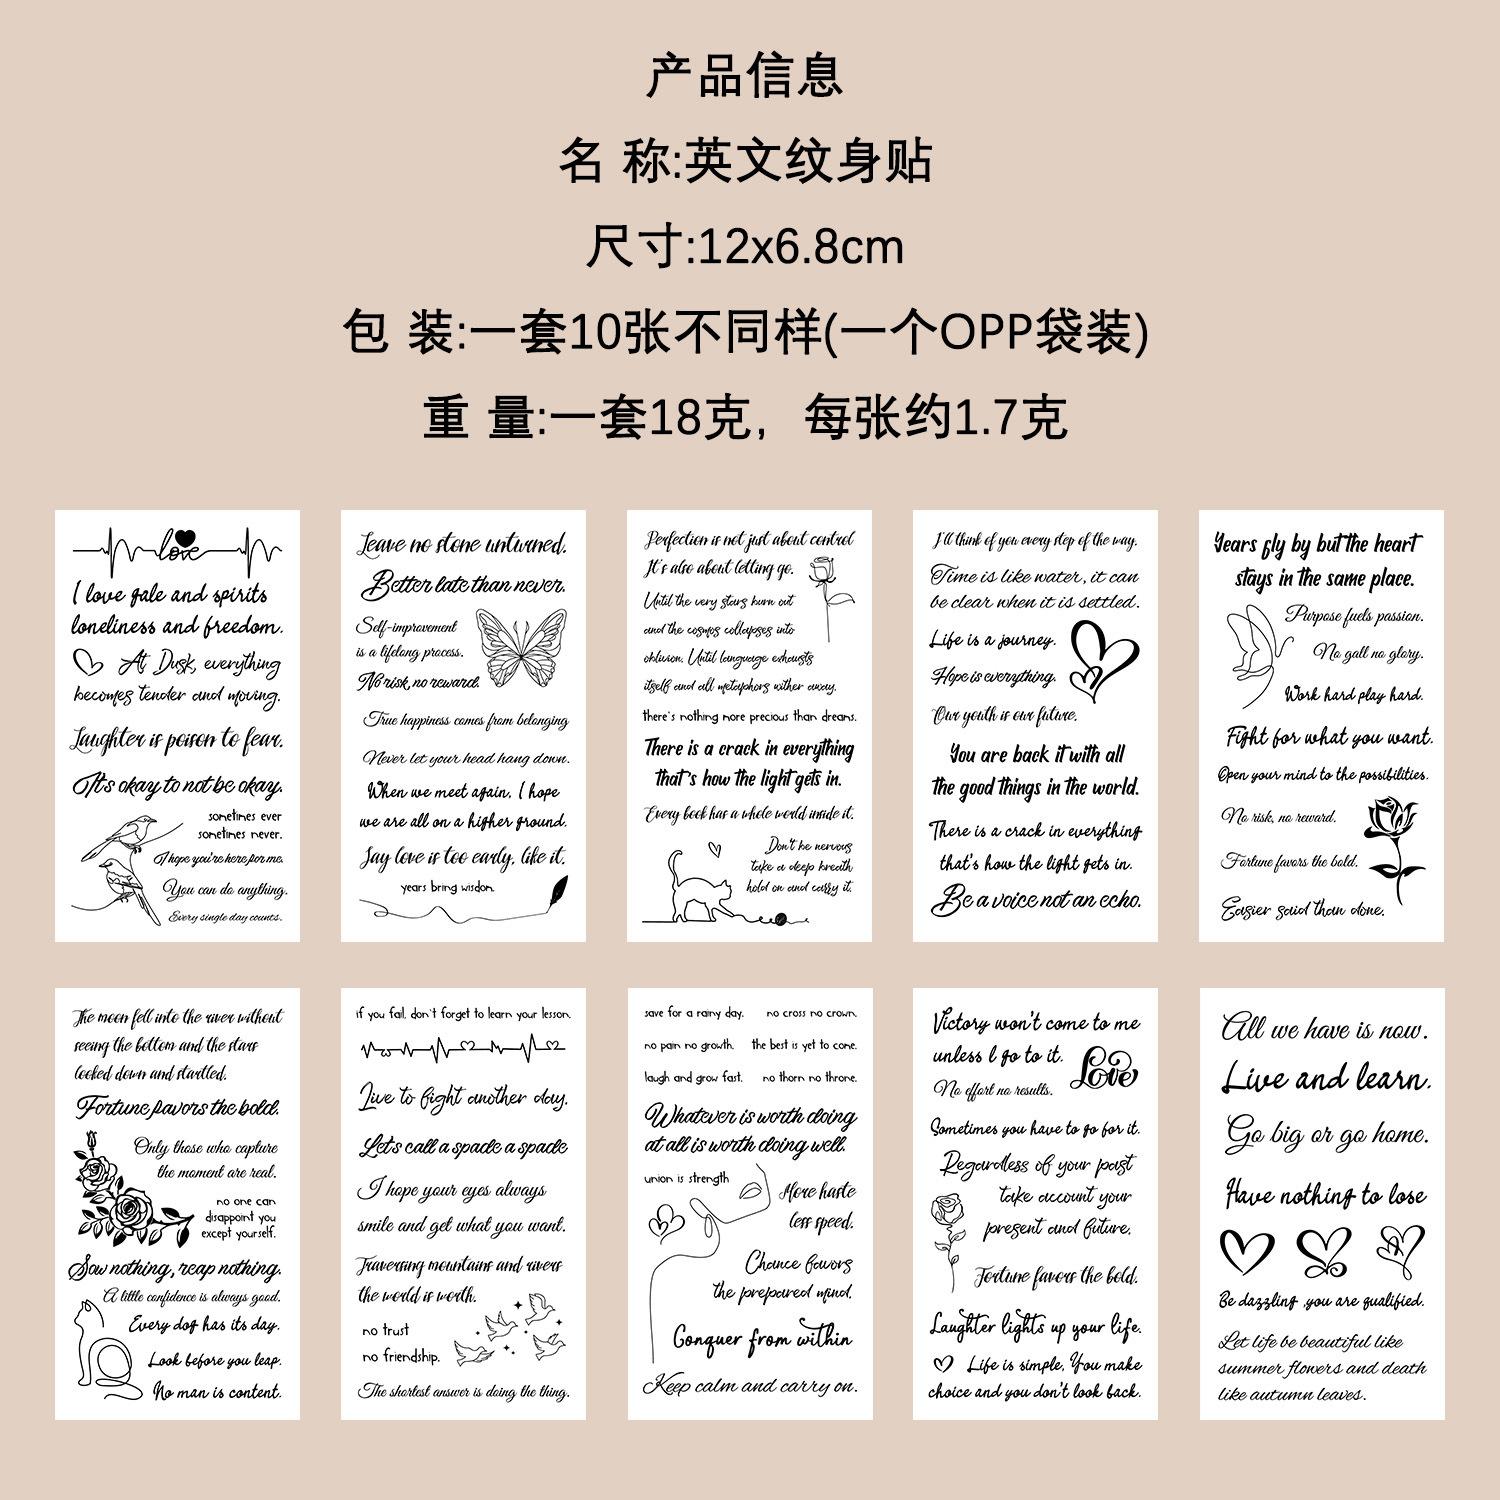 产品信息
名 称:英文纹身贴
尺寸:12x6.8cm
包 装:一套10张不同样(一个OPP袋装)
重 量:一套18克，每张约1.7克
love
I love gale and spirits
loneliness and freedom.
At Dusk, everything
becomes tender and moving.
Laughter is poison to fear.
It's okay to not be okay.
sometimes ever
sometimes never.
I hope you're here for me.
You can do anything.
Every single day counts.
Leave no stone unturned.
Better late than never.
Self-improvement
is a lifelong process.
No risk, no reward.
True happiness comes from belonging
Never let your head hang down.
When we meet again, I hope
we are all on a higher ground.
Say love is too early, like it.
years bring wisdon.
Perfection is not just about control
It's also about letting go.
Until the very stars burn out
and the cosmos collapses into
oblivion. Until language exhausts
itself and all metaphors wither away.
there's nothing more precious than dreams.
There is a crack in everything
that's how the light gets in.
Every book has a whole world inside it.
Don't be nervous
take a deep breath
hold on and carry it.
I'll think of you every step of the way.
Time is like water, it can
be clear when it is settled.
Life is a journey.
Hope is everything.
Our youth is our future.
You are back it with all
the good things in the world.
There is a crack in everything
that's how the light gets in.
Be a voice not an echo.
Years fly by but the heart
stays in the same place.
Purpose fuels passion.
No gall no glory.
Work hard play hard.
Fight for what you want.
Open your mind to the possibilities.
No risk, no reward.
Fortune favors the bold.
Easier said than done.
The moon fell into the river without
seeing the bottom and the stars
looked down and startled.
Fortune favors the bold.
Only those who capture
the moment are real.
no one can
disappoint you
except yourself.
Sow nothing, reap nothing.
A little confidence is always good.
Every dog has its day.
Look before you leap.
No man is content.
if you fail, don't forget to learn your lesson.
Live to fight another day.
Let's call a spade a spade
I hope your eyes always
smile and get what you want.
Traversing mountains and rivers
the world is worth.
no trust
no friendship.
The shortest answer is doing the thing.
save for a rainy day. no cross no crown.
no pain no growth. the best is yet to come.
laugh and grow fast. no thorn no throne.
Whatever is worth doing
at all is worth doing well.
union is strength
More haste
less speed.
Chance favors
the prepared mind.
Conquer from within
Keep calm and carry on.
Victory won't come to me
unless l go to it.
Love
No effort no results.
Sometimes you have to go for it.
Regardless of your past
take account your
present and future.
Fortune favors the bold.
Laughter lights up your life.
Life is simple, You make
choice and you don't look back.
All we have is now.
Live and learn.
Go big or go home.
Have nothing to lose
Be dazzling ,you are qualified.
Let life be beautiful like
summer flowers and death
like autumn leaves.